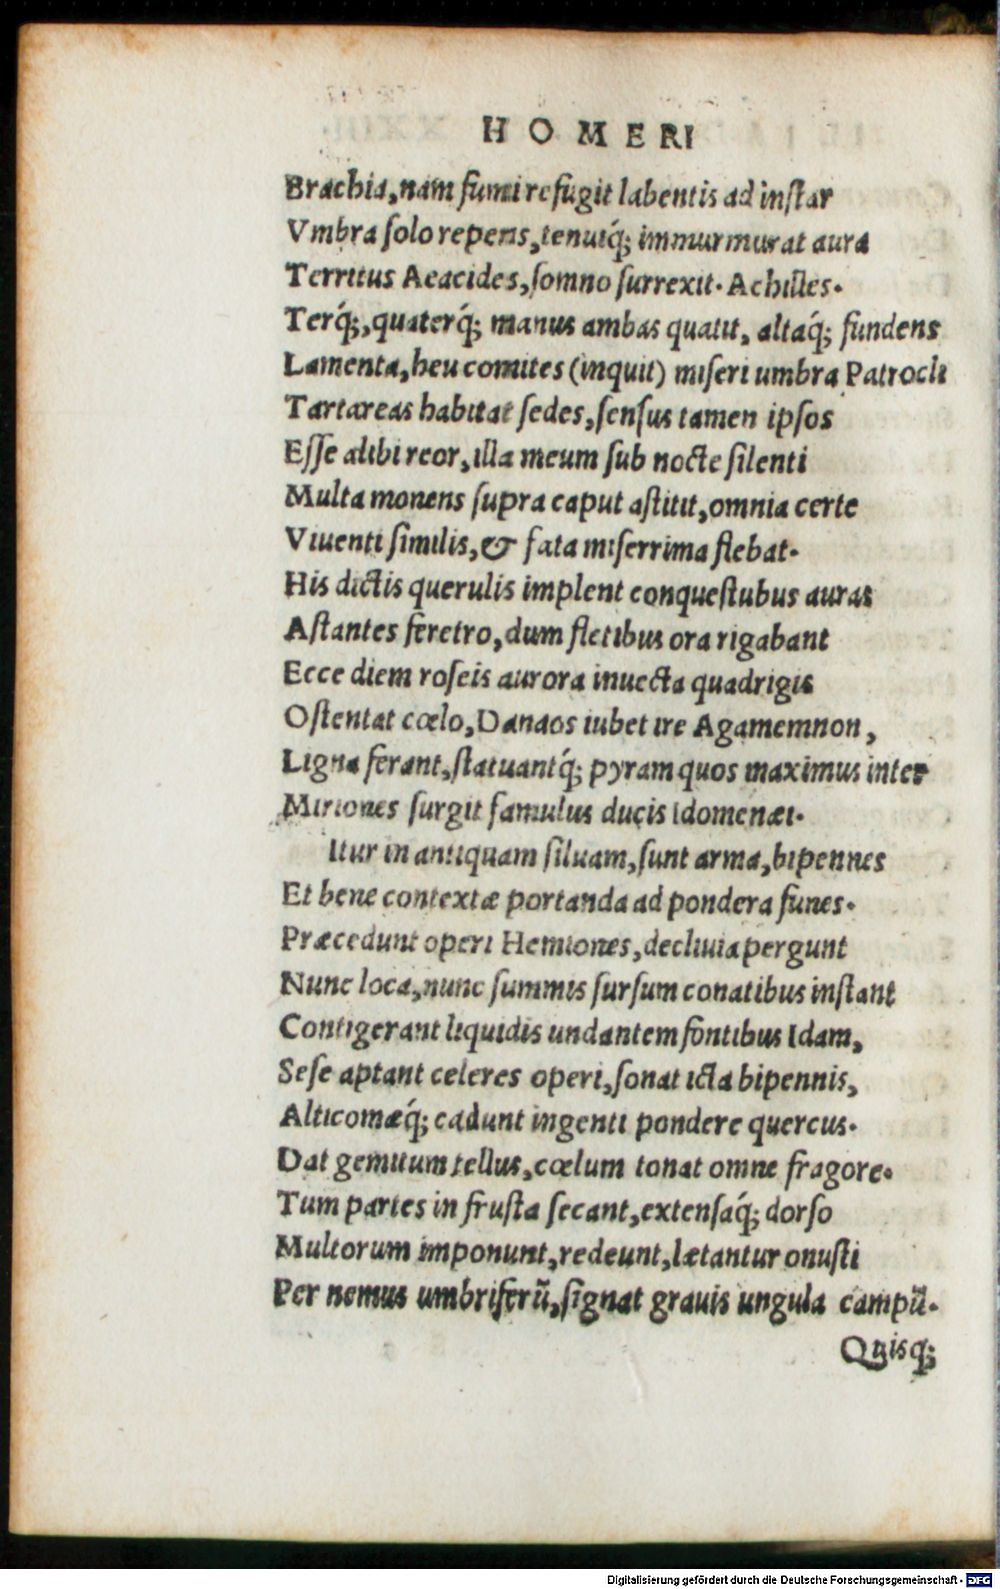 HOMERI
Brachia, nam fumi refugit labentis ad inſtar
Vmbra ſolo repens, tenuiq́; immurmurat aura
Territus Aeacides, ſomno ſurrexit. Achilles.
Terq́;, quaterq́; manus ambas quatit, altaq́; fundens
Lamenta, heu comites (inquit) miſeri umbra Patrocli
Tartareas habitat ſedes, ſenſus tamen ipſos
Eſſe alibi reor, illa meum ſub nocte ſilenti
Multa monens ſupra caput aſtitit, omnia certe
Viuenti ſimilis, & fata miſerrima flebat.
His dictis querulis implent conqueſtubus auras
Aſtantes feretro, dum fletibus ora rigabant
Ecce diem roſeis aurora inuecta quadrigis
Oſtentat cœlo, Danaos iubet ire Agamemnon,
Ligna ferant, ſtatuantq́; pyram quos maximus inter
Miriones ſurgit famulus ducis Idomenæi.
Itur in antiquam ſiluam, ſunt arma, bipennes
Et bene contextæ portanda ad pondera funes.
Præcedunt operi Hemiones, decliuia pergunt
Nunc loca, nunc ſummis ſurſum conatibus inſtant
Contigerant liquidis undantem fontibus Idam,
Seſe aptant celeres operi, ſonat icta bipennis,
Alticomæq́; cadunt ingenti pondere quercus.
Dat gemitum tellus, cœlum tonat omne fragore.
Tum partes in fruſta ſecant, extenſaq́; dorſo
Multorum imponunt, redeunt, lætantur onuſti
Per nemus umbriferũ, ſignat grauis ungula campũ.
Quisq;
Digitalisierung gefördert durch die Deutsche Forschungsgemeinschaft - DFG